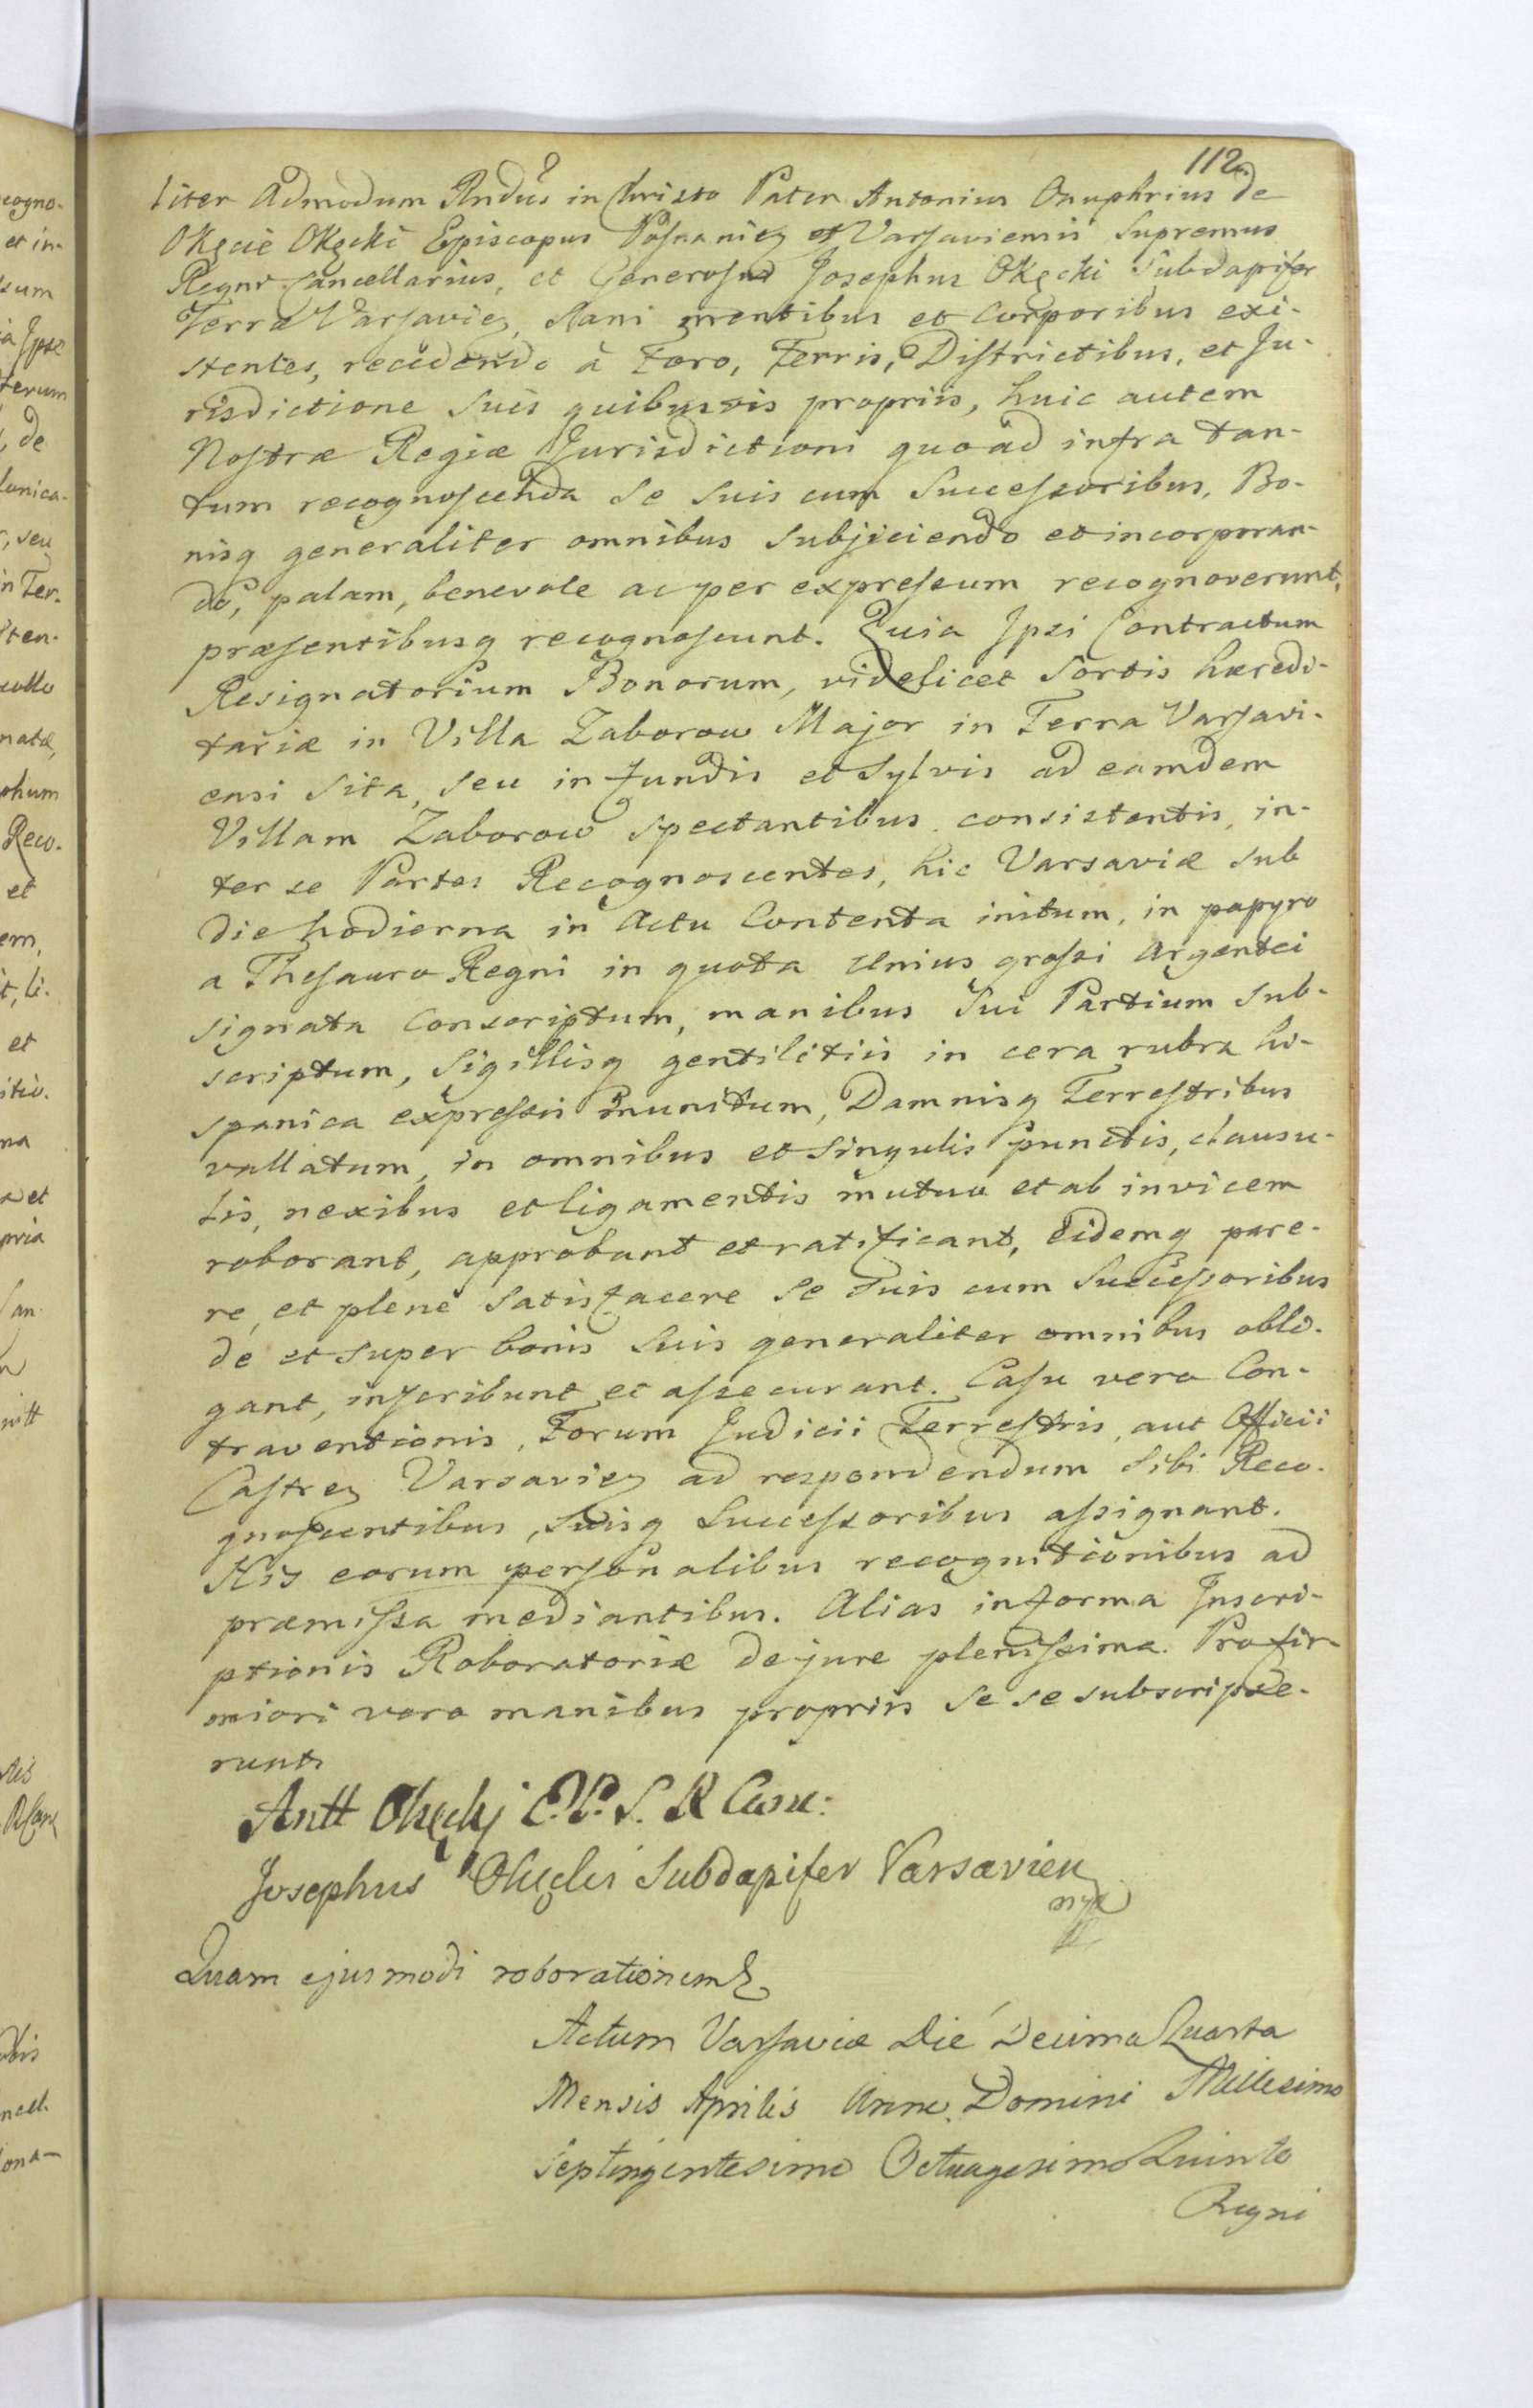 112.
liter Admodum Rndus in Christo Pater Antonius Onuphrius de
Okęcie Okęcki Episcopus Posnaniez et Varsaviensis Supremus
Regni Cancellarius, et Generosus Josephus Okęcki Subdapifer
Terræ Varsaviez, Sani mentibus et Corporibus exi-
stentes, recedendo à Foro, Terris, Districtibus, et Ju-
risdictione Suis quibusvis propriis, huic autem
Nostræ Regiæ Jurisdictioni quoad infra tan-
tum recognoscenda Se Suis cum Successoribus, Bo-
nisq generaliter omnibus Subjiciendo et incorporan-
do, palam, benevole ac per expressum recognoverunt,
præsentibusq recognoscunt. Quia Ipsi Contractum
Resignatorium Bonorum, videlicet Sortis hæredi-
tariæ in Villa Zaborow Major in Terra Varsavi-
ensi Sita, seu in fundis et Sylvis ad eamdem
Villam Zaborow Spectantibus consistentis, in-
ter se Partes Recognoscentes, hic Varsaviæ sub
die hodierna in Actu Contenta initum, in papyro
a Thesauro Regni in quota Unius grossi Argentei
signata Conscriptum, manibus Sui Partium Sub-
scriptum, Sigillisq gentilitiis in cera rubra hi-
spanica expressis munitum, Damnisq Terrestribus
vallatum, in omnibus et Singulis punctis, clausu-
lis, nexibus et ligamentis mutuo et ab invicem
roborant, approbant et ratificant, Eidemq pare-
re, et plene Satisfacere Se Suis cum Successoribus
de et super bonis Suis generaliter omnibus obli-
gant, inscribunt et assecurant. Casu vero Con-
traventionis, Forum Judicii Terrestris, aut Officii
Castrez Varsaviez ad respondendum Sibi Reco-
gnoscentibus, Suisq Successoribus assignant.
His eorum personalibus recognitionibus ad
præmissa mediantibus. Alias in forma Inscri-
ptionis Roboratoriæ de jure plenissima. Pro fir-
miori vero manibus propriis Se se subscripse-
runt.
Antt Okęckj E. P. S. R Canc:
Josephus Okęcki Subdapifer Varsavien
mp
Quam ejusmodi roborationem
Actum Varsaviæ Die Decima Quarta
Mensis Aprilis Anno Domini Millesimo
Septingentesimo Octuagesimo Quinto
Regni